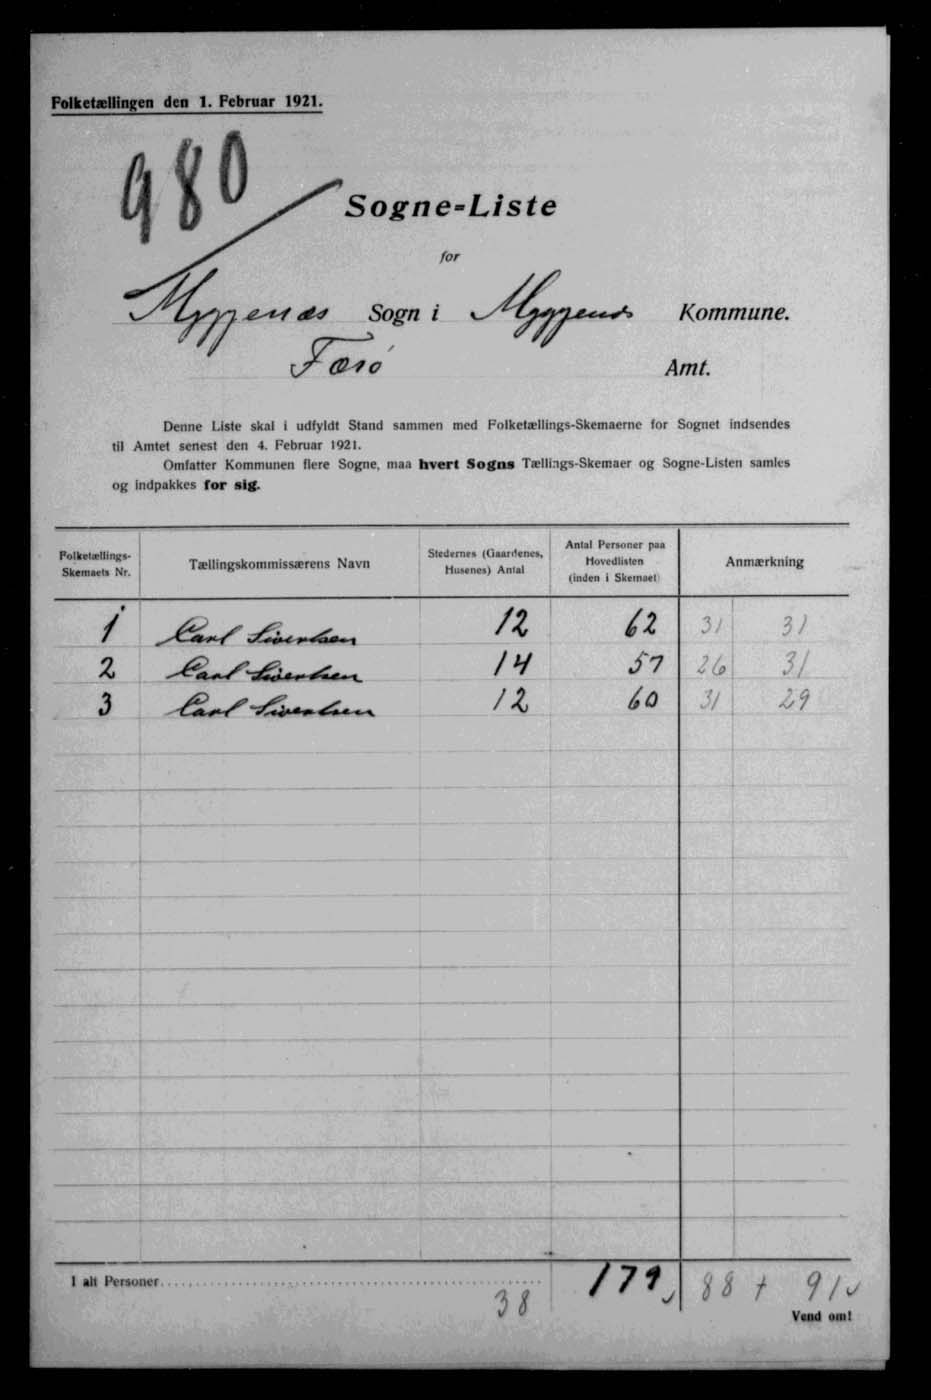 Folketællingen den 1. Februar 1921.
980
Sogne-Liste
for
Myggenæs Sogn i Myggenæs Kommune.
Færø Amt.
Denne Liste skal i udfyldt Stand sammen med Folketællings-Skemaerne for Sognet indsendes
til Amtet senest den 4. Februar 1921.
Omfatter Kommunen flere Sogne, maa hvert Sogns Tællings-Skemaer og Sogne-Listen samles
og indpakkes for sig.
Folketællings-Skemaets Nr. Tællingskommissærens Navn Stedernes (Gaardenes, Husenes) Antal Antal Personer paa Hovedlisten (inden i Skemaet) Anmærkning
1 Carl Sivertsen 12 62 31 31
2 Carl Sivertsen 14 57 26 31
3 Carl Sivertsen 12 60 31 29
I alt Personer 38 179 88 + 91
Vend om!